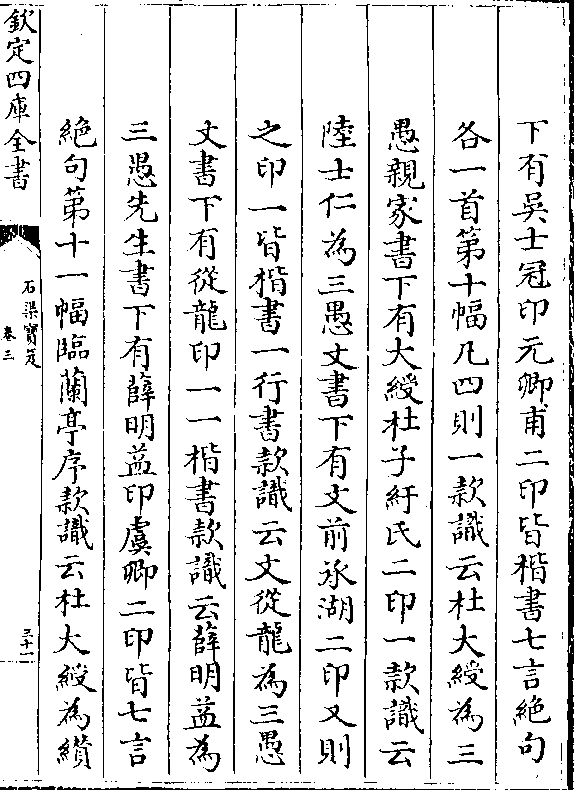 下有吳士冠印元卿甫二印皆楷書七言絶句
各一首第十幅凡四則一款識云杜大綬為三
愚親家書下有大綬杜子紆氏二印一款識云
陸士仁為三愚丈書下有文前承湖二印又則
之印一皆楷書一行書款識云文從龍為三愚
丈書下有從龍印一一楷書款識云薛明益為
三愚先生書下有薛明益印虞卿二印皆七言
絶句第十一幅臨蘭亭序款識云杜大綬為纘
欽定四庫全書
石渠寶笈
卷三
三十一